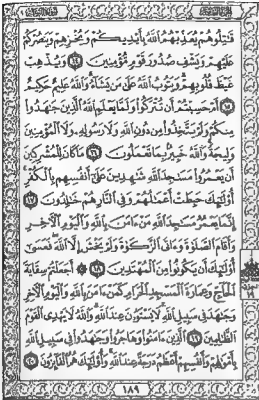 قَٰتِلُوهُمْ يُعَذِّبْهُمُ ٱللَّهُ بِأَيْدِيكُمْ وَيُخْزِهِمْ وَيَنصُرْكُمْ
عَلَيْهِمْ وَيَشْفِ صُدُورَ قَوْمٍ مُّؤْمِنِينَ ١٤ وَيُذْهِبْ
غَيْظَ قُلُوبِهِمْ وَيَتُوبُ ٱللَّهُ عَلَىٰ مَن يَشَآءُ وَٱللَّهُ عَلِيمٌ حَكِيمٌ
١٥ أَمْ حَسِبْتُمْ أَن تُتْرَكُوا۟ وَلَمَّا يَعْلَمِ ٱللَّهُ ٱلَّذِينَ جَٰهَدُوا۟
مِنكُمْ وَلَمْ يَتَّخِذُوا۟ مِن دُونِ ٱللَّهِ وَلَا رَسُولِهِۦ وَلَا ٱلْمُؤْمِنِينَ
وَلِيجَةً وَٱللَّهُ خَبِيرٌۢ بِمَا تَعْمَلُونَ ١٦ مَا كَانَ لِلْمُشْرِكِينَ
أَن يَعْمُرُوا۟ مَسَٰجِدَ ٱللَّهِ شَٰهِدِينَ عَلَىٰٓ أَنفُسِهِم بِٱلْكُفْرِ
أُو۟لَٰٓئِكَ حَبِطَتْ أَعْمَٰلُهُمْ وَفِى ٱلنَّارِ هُمْ خَٰلِدُونَ ١٧
إِنَّمَا يَعْمُرُ مَسَٰجِدَ ٱللَّهِ مَنْ ءَامَنَ بِٱللَّهِ وَٱلْيَوْمِ ٱلْءَاخِرِ
وَأَقَامَ ٱلصَّلَوٰةَ وَءَاتَى ٱلزَّكَوٰةَ وَلَمْ يَخْشَ إِلَّا ٱللَّهَ فَعَسَىٰٓ
أُو۟لَٰٓئِكَ أَن يَكُونُوا۟ مِنَ ٱلْمُهْتَدِينَ ١٨ ۞ أَجَعَلْتُمْ سِقَايَةَ
ٱلْحَآجِّ وَعِمَارَةَ ٱلْمَسْجِدِ ٱلْحَرَامِ كَمَنْ ءَامَنَ بِٱللَّهِ وَٱلْيَوْمِ ٱلْءَاخِرِ
وَجَٰهَدَ فِى سَبِيلِ ٱللَّهِ لَا يَسْتَوُۥنَ عِندَ ٱللَّهِ وَٱللَّهُ لَا يَهْدِى ٱلْقَوْمَ
ٱلظَّٰلِمِينَ ١٩ ٱلَّذِينَ ءَامَنُوا۟ وَهَاجَرُوا۟ وَجَٰهَدُوا۟ فِى سَبِيلِ ٱللَّهِ
بِأَمْوَٰلِهِمْ وَأَنفُسِهِمْ أَعْظَمُ دَرَجَةً عِندَ ٱللَّهِ وَأُو۟لَٰٓئِكَ هُمُ ٱلْفَآئِزُونَ ٢٠
١٨٩